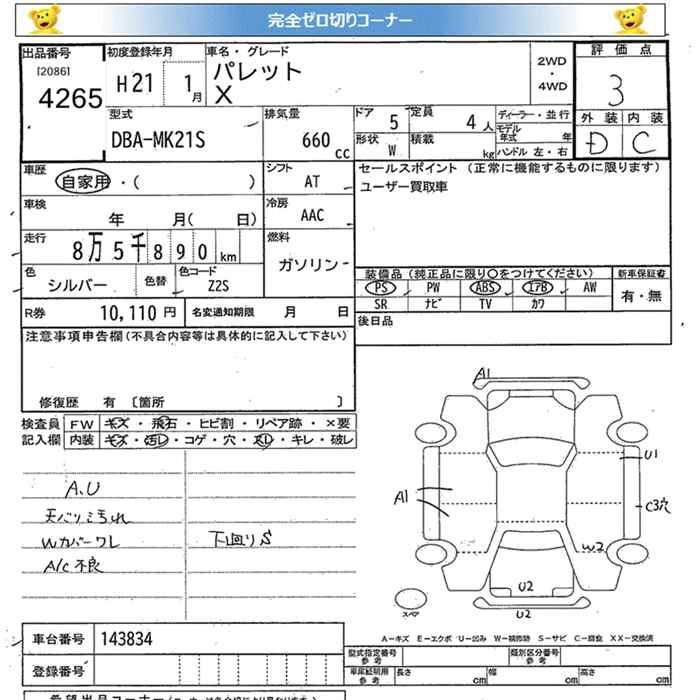 完全ゼロ切りコーナー
出品番号 初度登録年月 車名・グレード 2WD・4WD 評価点
[2086] 4265 H21 1月 パレット X 3
型式 排気量 ドア 5 定員 4人 ディーラー・並行 外装 内装
DBA-MK21S 660cc 形状 W 積載 kg モデル年式 年 ハンドル 左・右 D C
車歴 自家用・( ) シフト AT セールスポイント(正常に機能するものに限ります)
ユーザー買取車
車検 年 月( 日) 冷房 AAC
走行 8万5千890km 燃料 ガソリン
色 シルバー 色替 色コード Z2S
装備品(純正品に限り○をつけてください) 新車保証書
PS PW ABS エアB AW 有・無
SR ナビ TV カワ
R券 10,110円 名変通知期限 月 日 後日品
注意事項申告欄(不具合内容等は具体的に記入して下さい)
修復歴 有 [箇所 ]
検査員 FW キズ・飛石・ヒビ割・リペア跡・×要
記入欄 内装 キズ・汚レ・コゲ・穴・スレ・キレ・破レ
A.U
天バリミ汚れ
Wカバーワレ 下回りS
A/C不良
A1
U1
A1
C3穴
W2
U2
スペア
U2
A-キズ E-エクボ U-凹み W-補修跡 S-サビ C-腐食 XX-交換済
車台番号 143834
型式指定番号 参考 類別区分番号 参考
登録番号 車庫証明用 参考 長さ cm 幅 cm 高さ cm
希望出品コーナー